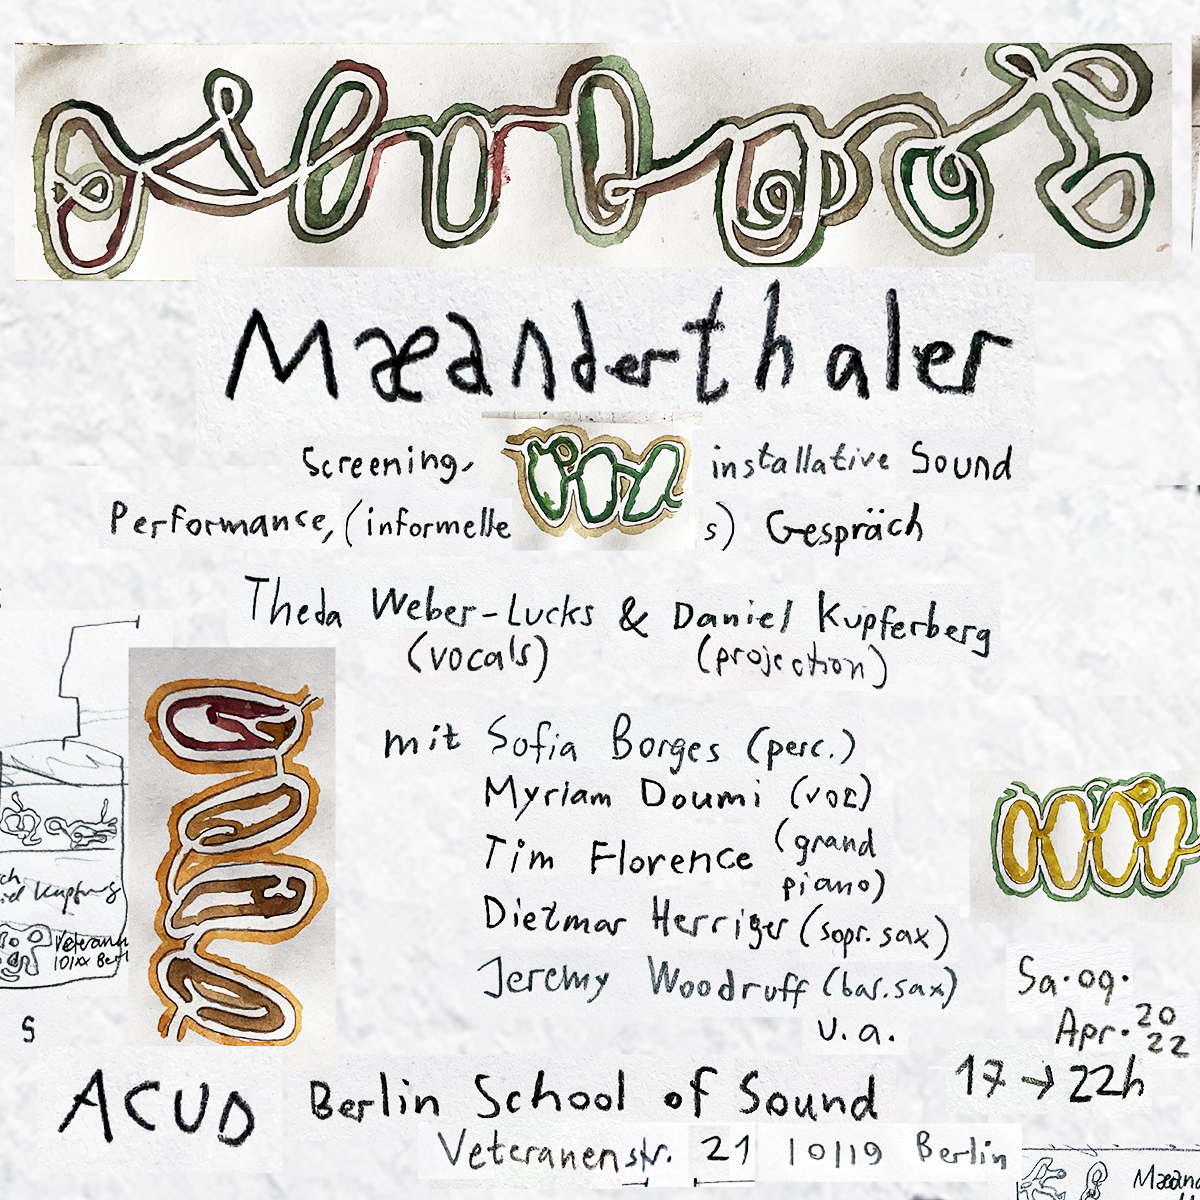 Mæanderthaler
Screening, installative Sound
Performance, (informelle s) Gespräch
Theda Weber-Lucks & Daniel Kupferberg
(vocals) (projection)
mit Sofia Borges (perc.)
Myriam Doumi (voc)
Tim Florence (grand
piano)
Dietmar Herriger (sopr. sax)
Jeremy Woodruff (bar. sax)
u.a.
Sa. 09.
Apr. 2022
17 → 22h
ACUD Berlin School of Sound
Veteranenstr. 21 10119 Berlin
ch
Veteranen
101xx Berl
s
Mæan